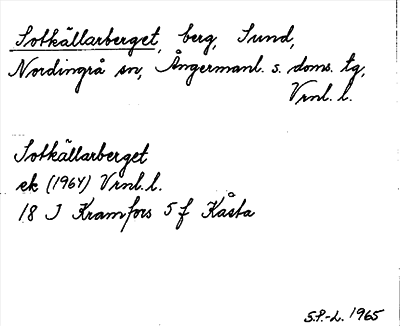 Sotkällarberget, berg, Sund,
Nordingrå sn, Ångermanl. s. doms. tg,
Vrnl. l.
Sotkällarberget
ek (1964) Vrnl. l.
18 J Kramfors 5 f Kåsta
S.P.-L. 1965